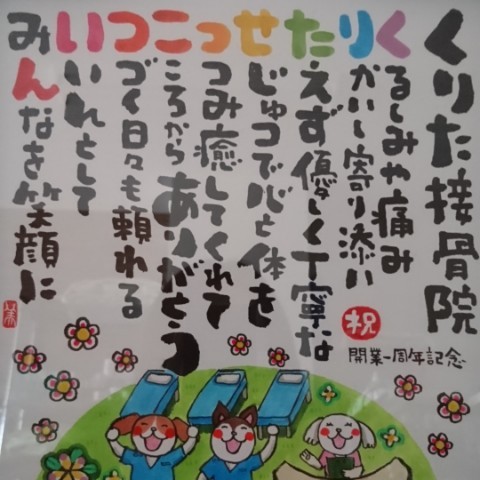 くりた接骨院
くるしみや痛み
りかいし寄り添い
たえず優しく丁寧な
せじゅつで心と体を
っつみ癒してくれて
こころからありがとう
つづく日々も頼れる
いいれとして
みんなを笑顔に
祝
開業一周年記念